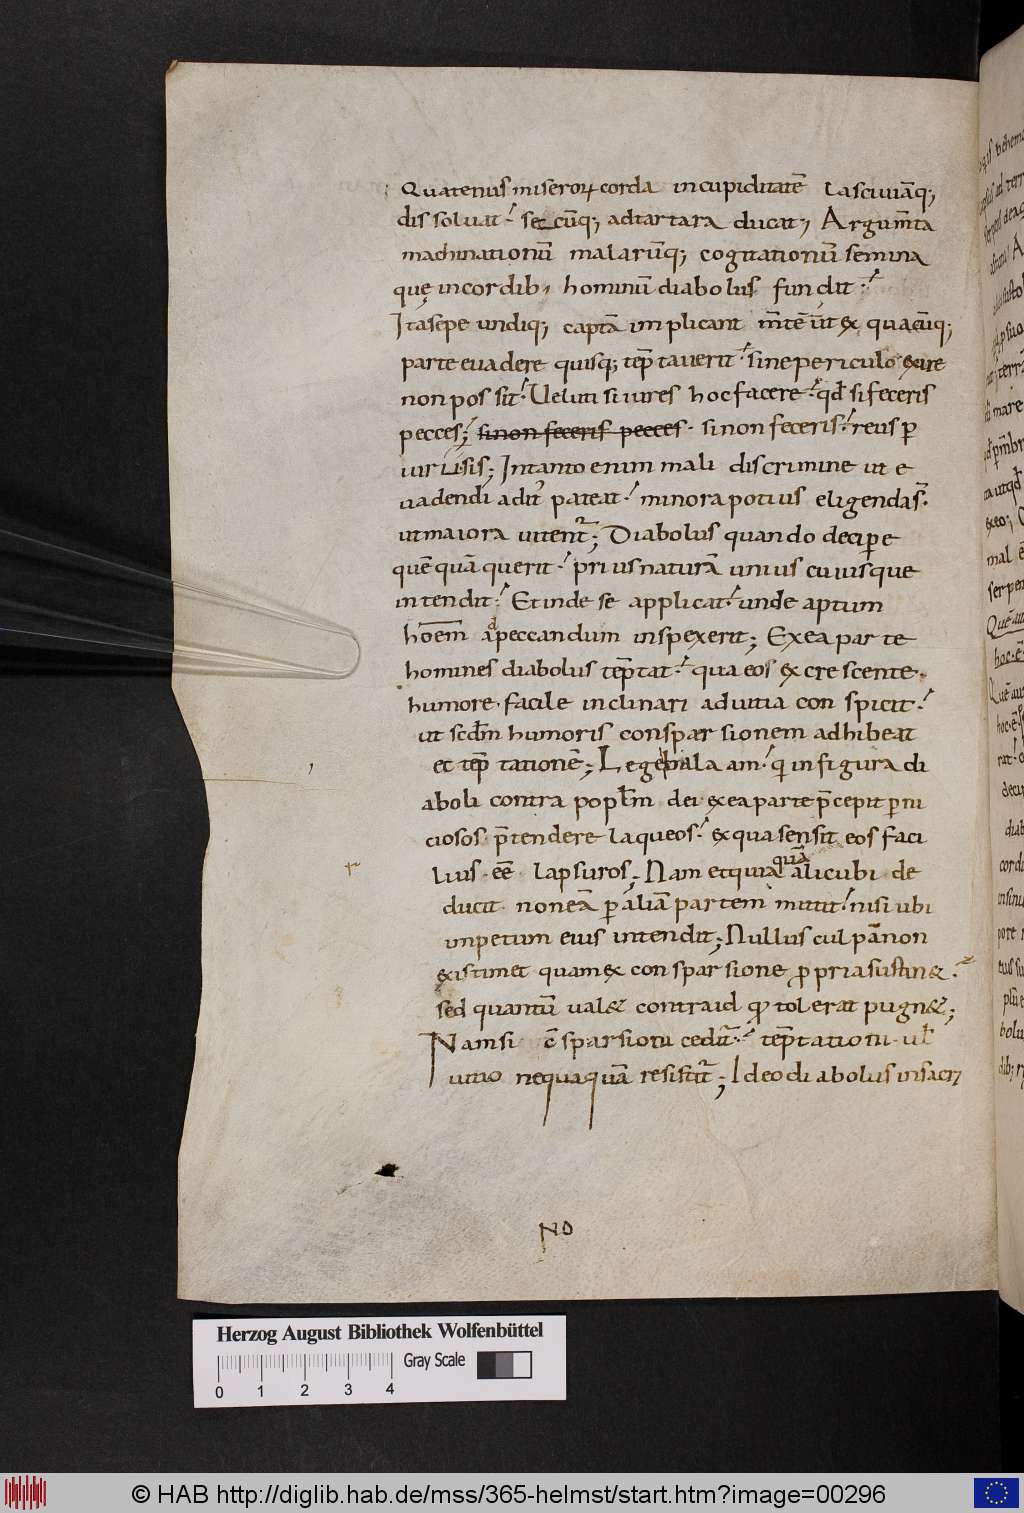 Quatenus miseroꝝ corda in cupiditatē lasciuiāq;
dissoluat. secūq; ad tartara ducat; Argum̄ta
machinationū malarūq; cogitationū semina
quę in cordib; hominū diabolus fundit.
Ita sepe undiq; captā implicant m̄tē ut ex quacūq;
parte euadere quisq; tēptauerit. sine periculo exire
non possit. Veluti si iures hoc facere. qđ si feceris
pecces; si non feceris pecces. si non feceris. reus ꝑ
iurii sis; In tanto enim mali discrimine ut e
uadendi adit᷒ pateat. minora potius eligenda s̄.
ut maiora uitent᷑; Diabolus quando decipere
quēquā querit. prius naturā unius cuiusque
intendit. Et inde se applicat. unde aptum
hoēm ad peccandum inspexerit; Ex ea parte
homines diabolus tēptat. qua eos excrescente
humore. facile inclinari ad uitia conspicit.
ut scdm̄ humoris consparsionem adhibeat
et tēptationē; Lege balaam. qui in figura di
aboli contra poplm̄ dei ex ea parte p̄cepit ꝑni
ciosos p̄tendere laqueos. ex qua sensit eos faci
lius eē lapsuros; Nam et qui aquā alicubi de
ducit. non eā ꝑ aliā partem mittit. nisi ubi
impetum eius intendit; Nullus culpā non
existimet quam ex consparsione ꝓpria sustin&.
sed quantū ual& contra id qđ tolerat pugn&;
Nam si c̄sparsioni cedit᷑. tēptationi. ul̄
uitio nequaquā resistit᷑; Ideo diabolus in sacri
NO
Herzog August Bibliothek Wolfenbüttel
Gray Scale
0 1 2 3 4
© HAB http://diglib.hab.de/mss/365-helmst/start.htm?image=00296